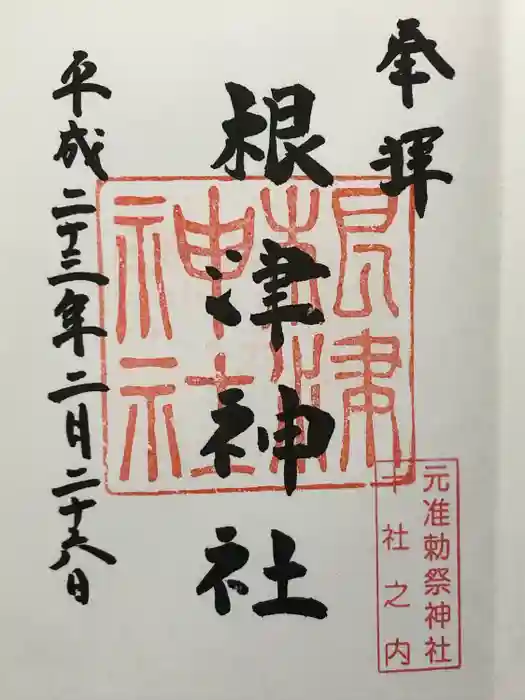 奉拝
根津神社
根津神社
元准勅祭神社
十社之内
平成二十三年二月二十六日